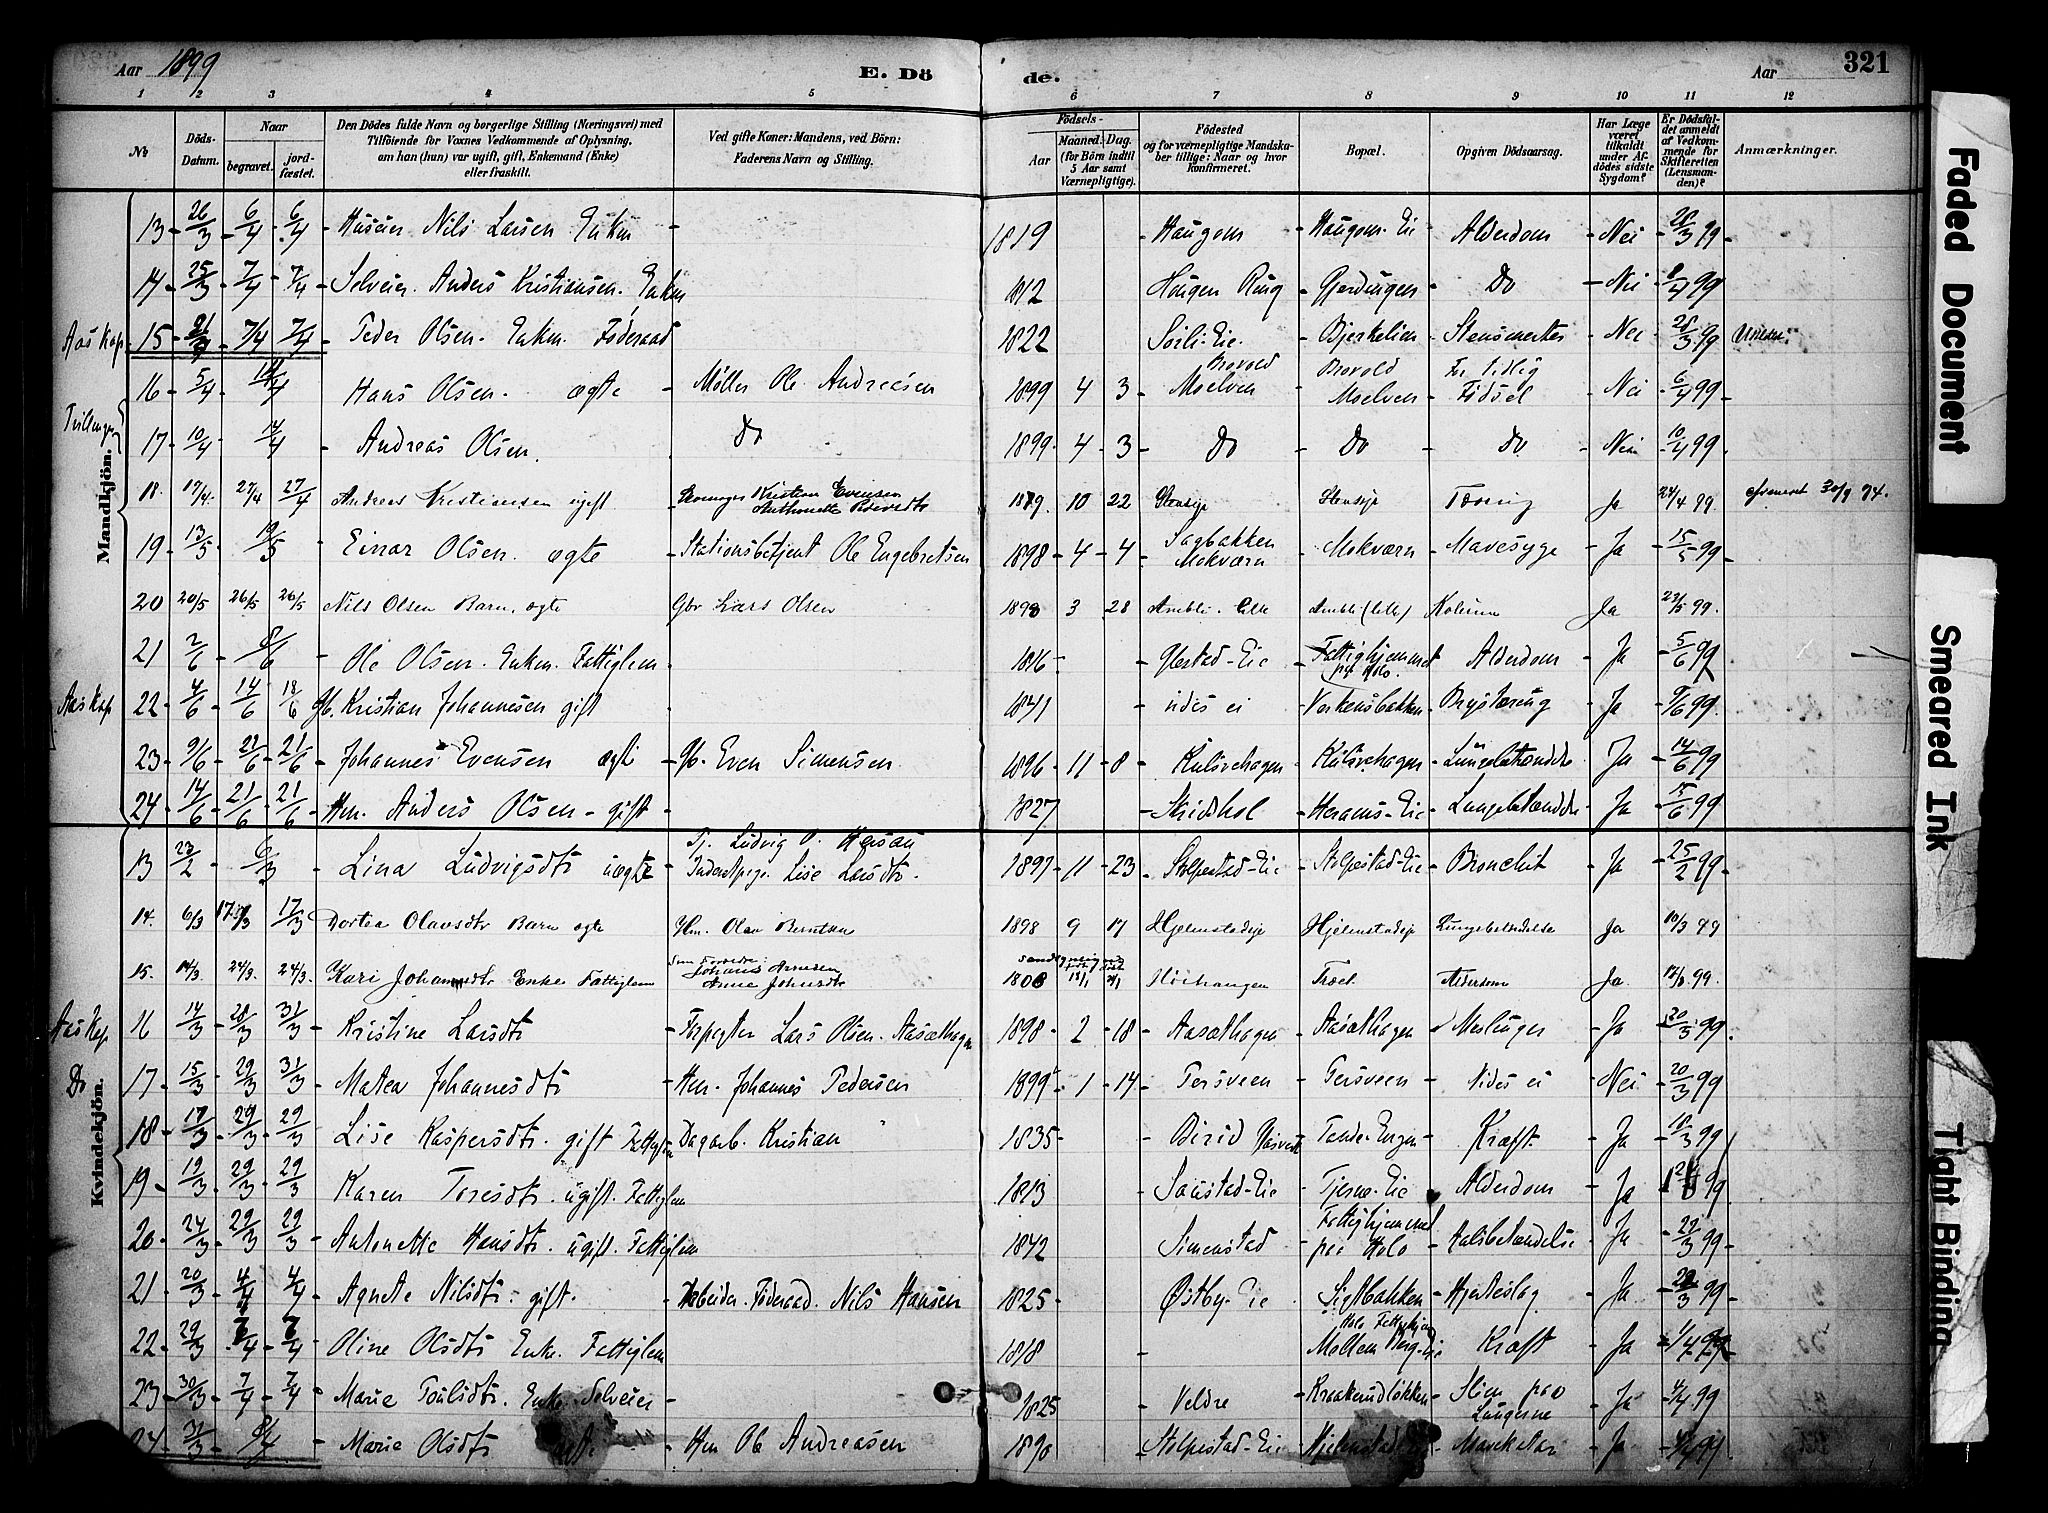 Aar 1899 E. Dö
de. Aar 321
1 2 3 4 5 6 7 8 9 10 11 12
No Döds-Datum. Naar begravet. jord-fæstet. Den Dödes fulde Navn og borgerlige Stilling (Næringsvei) med Tilföiende for Voxnes Vedkommende af Oplysning, om han (hun) var ugift, gift, Enkemand (Enke) eller fraskilt. Ved gifte Koner: Mandens, ved Börn: Faderens Navn og Stilling. Födsels- Aar Maaned. Dag. (for Börn indtil 5 Aar samt Værnepligtige). Födested og for værnepligtige Mandska-ber tillige: Naar og hvor konfirmeret. Bopæl. Opgiven Dödsaarsag. Har Læge været tilkaldt under Af-dödes sidste Sygdom? Er Dödsfal-det anmeldt af Vedkom-mende for Skifteretten (Lensman-den)? Anmærkninger.
Mandkjön.
13 26/3 6/4 6/4 Huseier Nils Larsen Enkm 1819 Haugom Haugom-Eie Alderdom Nei 28/3 99
14 25/3 7/4 7/4 Selveier Anders Kristiansen. Enkm 1812 Haugen Ring Gjerdingen Do Nei 8/4 99
Aas Kap 15 7/4 7/4 Peder Olsen. Enkem. Föderaad 1822 Sörli-Eie Bjerkelien Stensmerter Nei 28/3 99
16 5/4 14/4 Hans Olsen. ægte Møller Ole Andreasen 1899 4 3 Brovold Moelven Brovold Moelven For tidlig Födsel Nei 6/4 99
Tvillinger
17 10/4 14/4 Andreas Olsen. Do 1899 4 3 Do Do Do Nei 10/4 99
18. 17/4. 27/4 27/4 Andreas Kristiansen ugift Kristian Evensen 1879. 10 22 Stenseje Stenseje Tæring Ja 24/4 99.
19 13/5 19/5 Einar Olsen. ægte Stationsbetjent Ole Engebretsen 1898 4 4 Sagbakken Mokværn Mokværn Mavesyge Ja 15/5 99
20 20/5 26/5 26/5 Nils Olsen Barn, ægte Gbr Lars Olsen 1898 3 28 Ambli. Lille Ambli (lille) Kolerine Ja 23/5 99.
21 2/6 8/6 Ole Olsen. Enkem. Fattiglem 1816 Gjestad-Eie Fattighjemmet paa Holo. Alderdom Ja 5/6 99
Aas Kap 22 4/6 14/6 18/6 Gb. Kristian Johannesen gift 1841 vides ei Verkensbakken Brysttæring Ja 9/6 99.
23 9/6 21/6 21/6 Johannes Evensen ægte Gb. Even Simensen 1896 11 8 Kulsvehagen Kulsvehagen Lungebetændelse Ja 14/6 99
24 14/6 21/6 21/6 Hm. Anders Olsen gift 1827 Skridshol Heramb-Eie Lungebetændelse Ja 15/6 99
Kvindekjön.
13 23/2 6/3 Lina Ludvigsdtr uægte Tj. Ludvig O. Inderstpige Lise Larsdtr. 1897 11 23 Stolpestad-Eie Stolpestad-Eie Bronchit Ja 25/2 99
14. 6/3 17/3 17/3 Dortea Olavsdtr Barn ægte Hm. Olav Berntsen 1898 9 17 Hjelmstadeje Hjelmstadeje Lungebetændelse Ja 10/3 99
15. 14/3 24/3. 24/3. Kari Enke Fattiglem Johans Arnesen Anne Johnsdtr 1808 Alderdom Ja. 17/3. 99.
Aas Kap 16 14/3 28/3 31/3 Kristine Larsdtr Forpagter Lars Olsen. Aasæthagen 1898 2 18 Aasæthagen Aasæthagen Meslinger Ja 20/3 99.
Do 17 15/3 29/3 31/3 Matea Johannesdtr Hm. Johannes Pedersen 1899 1 14 Tersveen Tersveen Vides ei Nei 20/3 99
18 17/3 29/3 29/3 Lise Kaspersdtr. gift Fattiglem Dagarb. Kristian 1835 Birid Kræft Ja 18/3 99
19 19/3 29/3 29/3 Karen Toresdtr. ugift. Fattiglem 1813 Saustad-Eie Tjerne-Eie Alderdom Ja 99
20 24/3 29/3 29/3 Antonette Hansdtr. ugift. Fattiglem 1842 Simenstad Fattighjemmet paa Holo Halsbetændelse Ja 29/3 99
21 20/3 4/4 4/4 Agnete Nilsdtr. gift. Arbeider. Föderaad. Nils Hansen 1825 Østby-Eie Sigstbakken Hjerteslag Ja 99
22 29/3 7/4 7/4 Oline Olsdtr Enke. Fattiglem 1818 Holo Fattighjem Mellem Berg-Eie Kræft Ja 1/4 99
23 30/3 7/4 7/4 Marie Poulsdtr. Enke Selveier 1825 Veldre Kraakerudløkken Slim paa Lungerne Ja 4/4 99
24 31/3 8/4 Marie Olsdtr ægte Hm Ole Andreasen 1890 Stolpestad-Eie Mavekatar Ja 99
Faded Document
Smeared Ink
Tight Binding